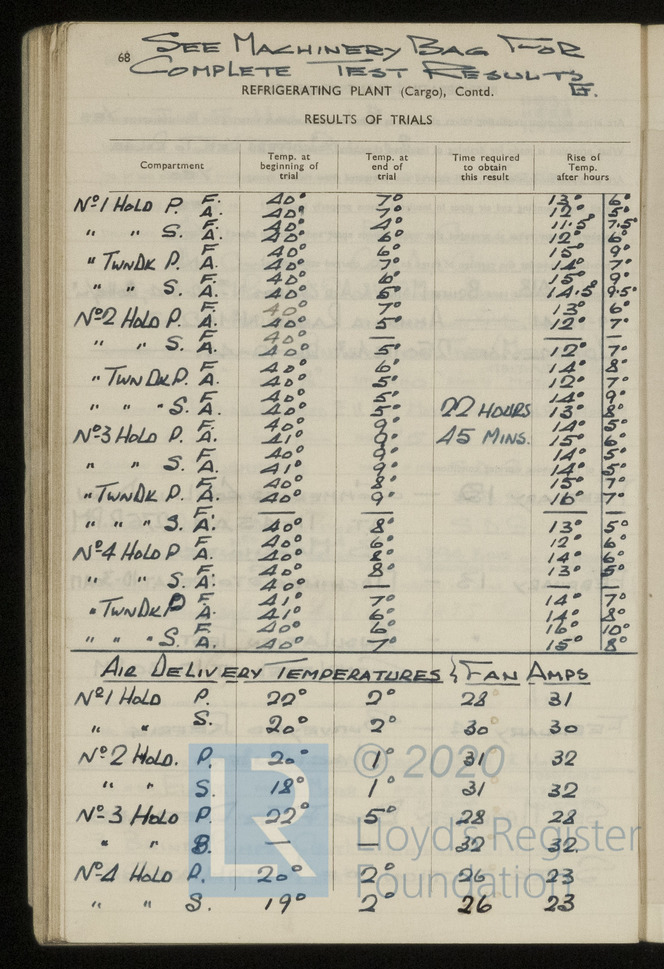 68
SEE MACHINERY BAG FOR
COMPLETE TEST RESULTS
REFRIGERATING PLANT (Cargo), Contd.
RESULTS OF TRIALS
Compartment Temp. at beginning of trial Temp. at end of trial Time required to obtain this result Rise of Temp. after hours
Nº1 HOLD P. F. 40° 7° 13° 6°
A. 40° 7° 12° 5°
" " S. F. 40° 4° 11.5° 7.5°
A. 40° 6° 12° 6°
" TWNDK P. F. 40° 6° 15° 9°
A. 40° 7° 14° 7°
" " S. F. 40° 6° 15° 9°
A. 40° 5° 14.5° 9.5°
Nº2 HOLD P. F. 40° 7° 13° 6°
A. 40° 5° 12° 7°
" " S. F. 40° — — —
A. 40° 5° 12° 7°
" TWNDK P. F. 40° 6° 14° 8°
A. 40° 5° 12° 7°
" " " S. F. 40° 5° 14° 9°
A. 40° 5° 22 HOURS 13° 8°
Nº3 HOLD P. F. 40° 9° 14° 5°
A. 41° 9° 45 MINS. 15° 6°
" " S. F. 40° 9° 14° 5°
A. 41° 9° 14° 5°
" TWNDK P. F. 40° 8° 15° 7°
A. 40° 9° 16° 7°
" " " S. F. — — — —
A. 40° 8° 13° 5°
Nº4 HOLD P F. 40° 6° 12° 6°
A. 40° 8° 14° 6°
" " S. F. 40° 8° 13° 5°
A. — — — —
" TWNDK P F. 41° 7° 14° 7°
A. 41° 6° 14° 8°
" " " S. F. 40° 6° 16° 10°
A. 40° 7° 15° 8°
AIR DELIVERY TEMPERATURES & FAN AMPS
Nº1 HOLD P. 22° 2° 28 31
" " S. 20° 2° 30 30
Nº2 HOLD. P. 20° 1° 31 32
" " S. 18° 1° 31 32
Nº3 HOLD P. 22° 5° 28 28
" " S. — — 32 32
Nº4 HOLD P. 20° 2° 26 23
" " S. 19° 2° 26 23
© 2020
Lloyd's Register
Foundation
LR